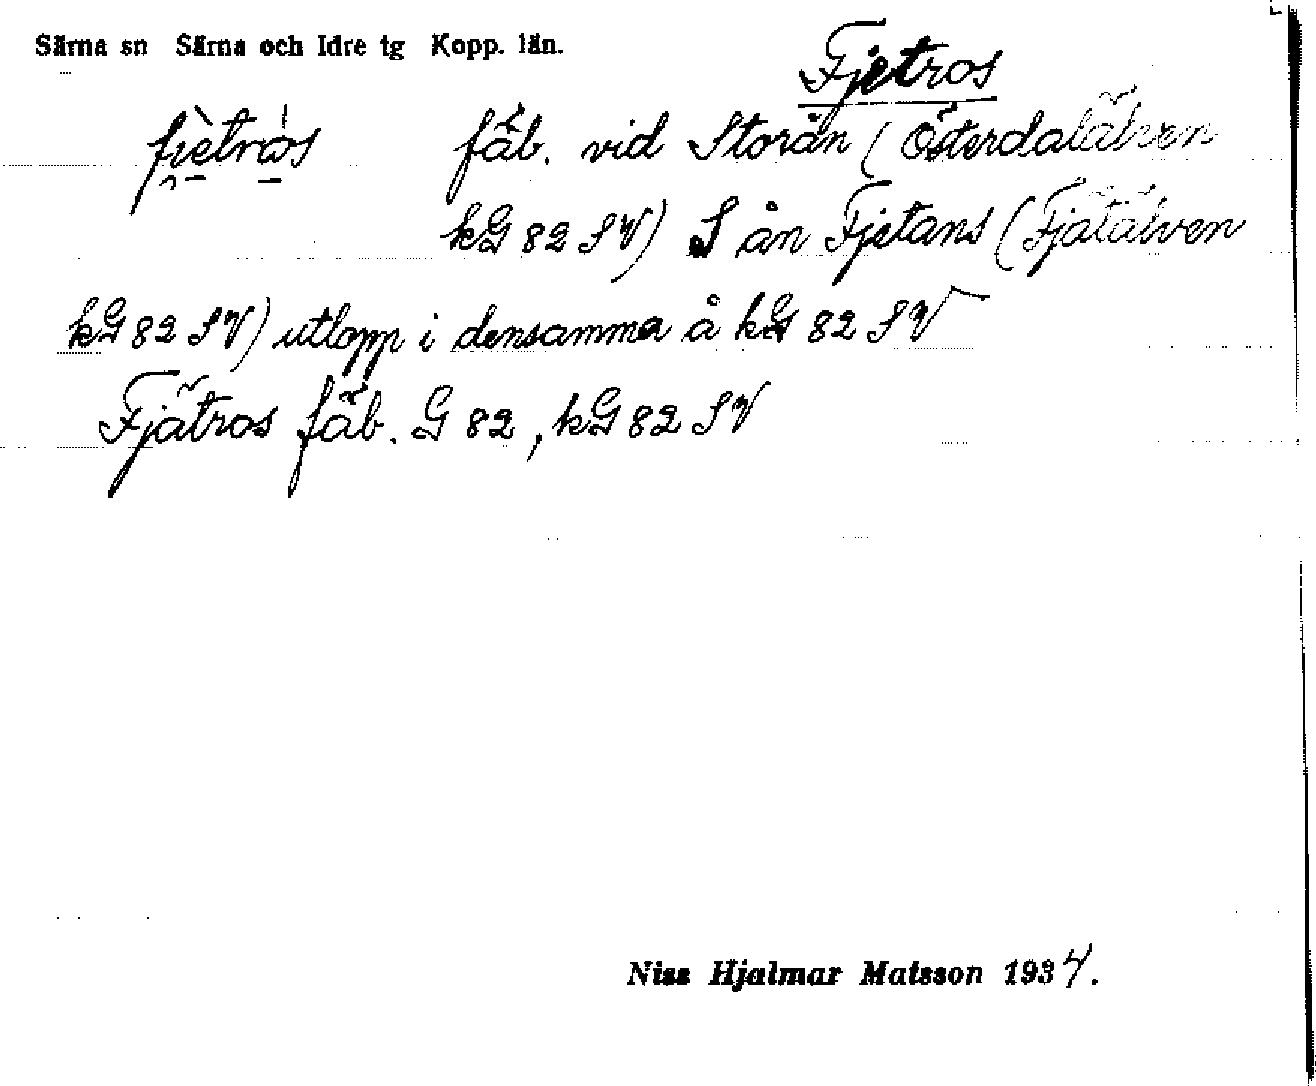 Särna sn Särna och Idre tg Kopp. län.
Fjetros
fäb. vid Storån (Österdalälven
kG 82 SV) S ån Fjetans (Fjätälven
kG 82 SV) utlopp i densamma å kG 82 SV
Fjätros fäb. G 82, kG 82 SV
Niss Hjalmar Matsson 1934.